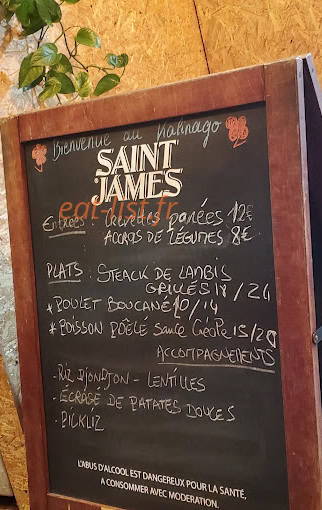 Bienvenue au Kalinago
SAINT
JAMES
eat-list.fr
Entrées : Crevettes panées 12€
ACCRAS DE LÉGUMES 8€
PLATS : STEACK DE LAMBIS
GRILLÉS 18/24
* POULET BOUCANÉ 10/14
* POISSON POÊLÉ Sauce Créole 15/20
ACCOMPAGNEMENTS
- RIZ DJONDJON - LENTILLES
- ÉCRASÉ DE PATATES DOUCES
- PICKLIZ
L'ABUS D'ALCOOL EST DANGEREUX POUR LA SANTÉ,
A CONSOMMER AVEC MODERATION.